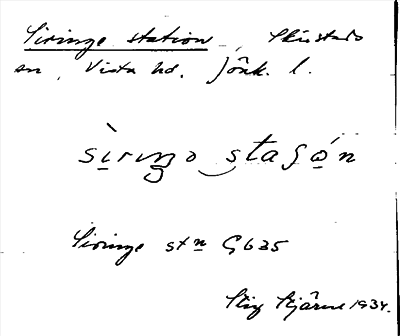 Siringe station, Skärstads
sn, Vista hd. Jönk. l.
sìriŋo staʃón
Siringe stn G635
Stig Stjärne 1934.